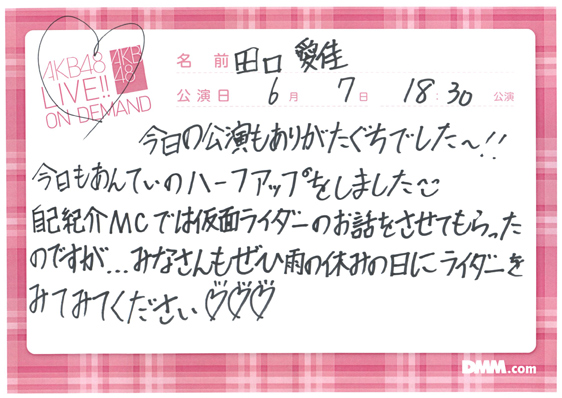 AKB48
LIVE!!
ON DEMAND
AKB
48
名前 田口 愛佳
公演日 6月 7日 18:30 公演
今日の公演もありがたぐちでした〜!!
今日もあんていのハーフアップをしました
自己紹介MCでは仮面ライダーのお話をさせてもらった
のですが...みなさんもぜひ雨の休みの日にライダーを
みてみてください♡♡♡
DMM.com